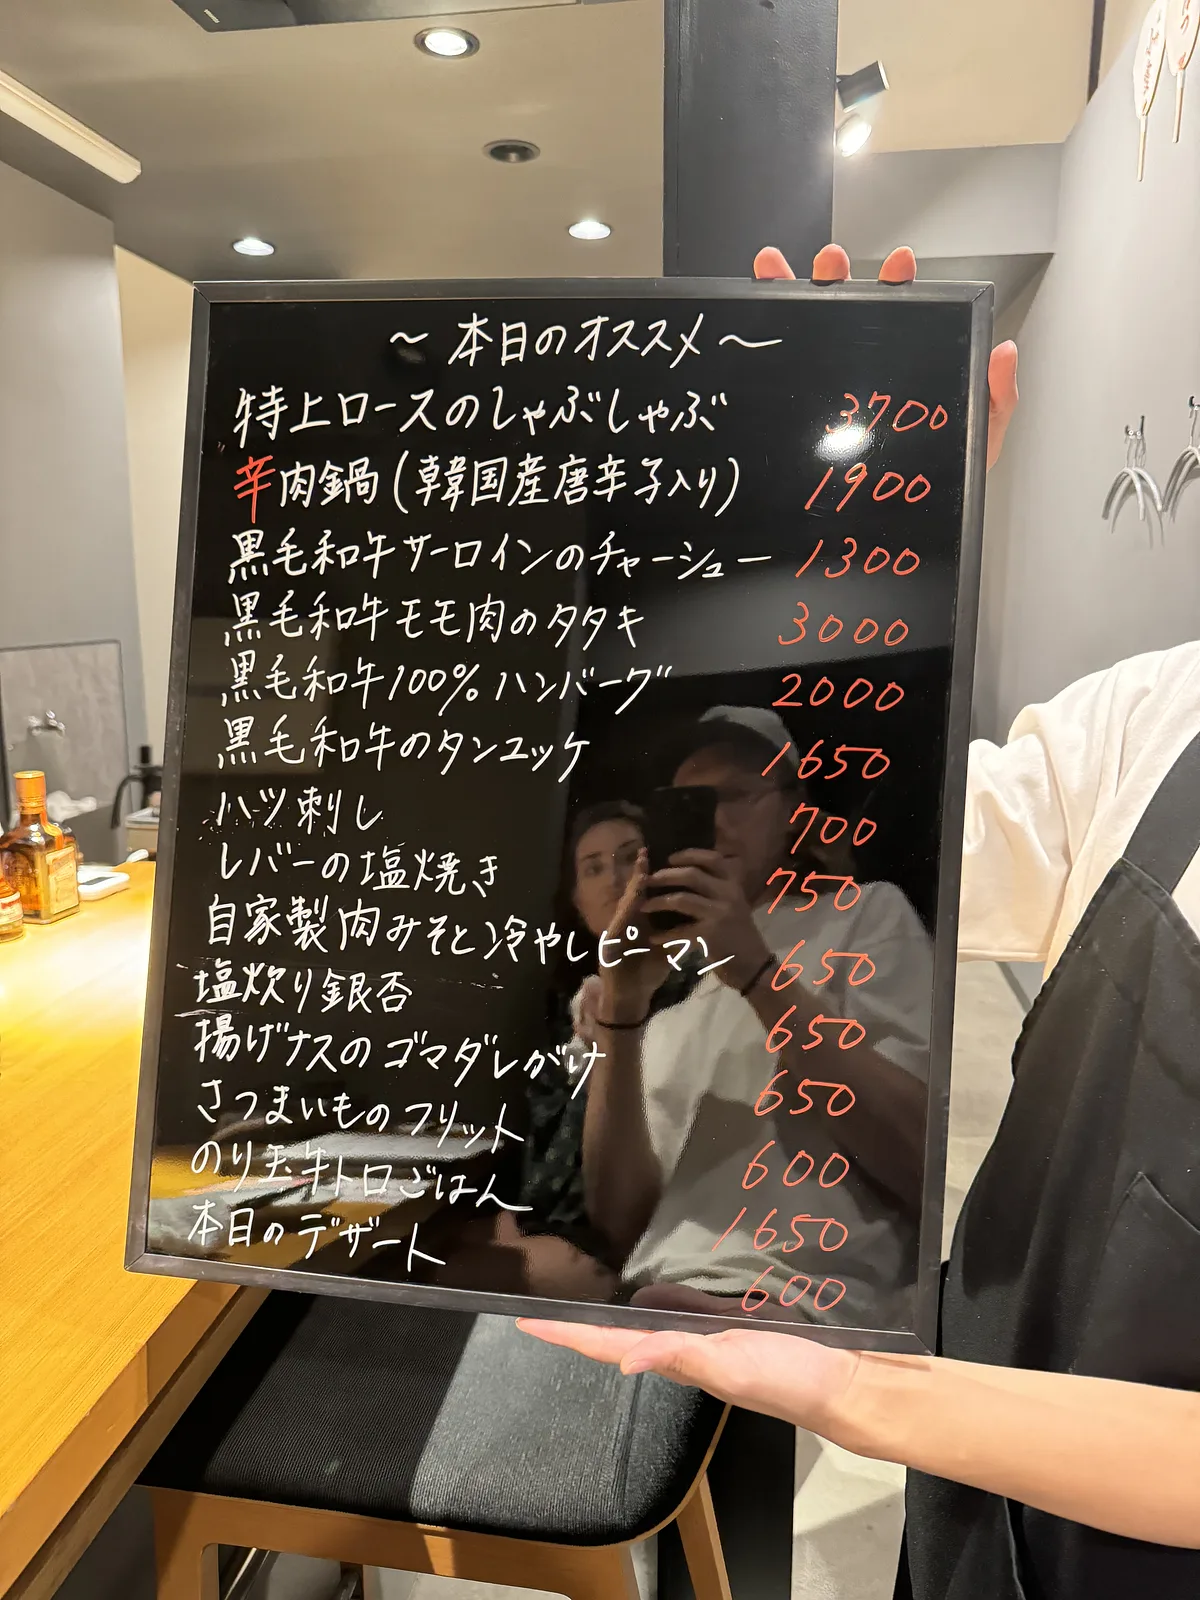 ～ 本日のオススメ ～
特上ロースのしゃぶしゃぶ 3700
辛肉鍋(韓国産唐辛子入り) 1900
黒毛和牛サーロインのチャーシュー 1300
黒毛和牛モモ肉のタタキ 3000
黒毛和牛100%ハンバーグ 2000
黒毛和牛のタンユッケ 1650
ハツ刺し 700
レバーの塩焼き 750
自家製肉みそと冷やしピーマン 650
塩炊り銀杏 650
揚げナスのゴマダレがけ 650
さつまいものフリット 600
のり玉牛トロごはん 1650
本日のデザート 600